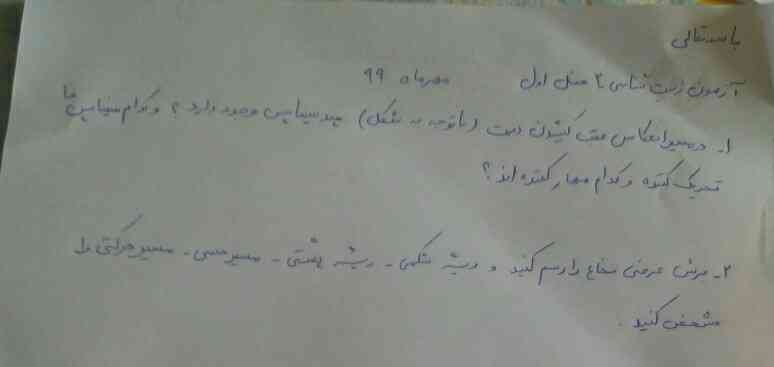 باسمه تعالی
آزمون زیست شناسی ۲ فصل اول مهرماه ۹۹
۱- در مسیر انعکاس عقب کشیدن دست (با توجه به شکل) چند سیناپس وجود دارد؟ و کدام سیناپس ها
تحریک کننده و کدام مهار کننده اند؟
۲- برش عرضی نخاع را رسم کنید و ریشه شکمی - ریشه پشتی - مسیر حسی - مسیر حرکتی را
مشخص کنید.